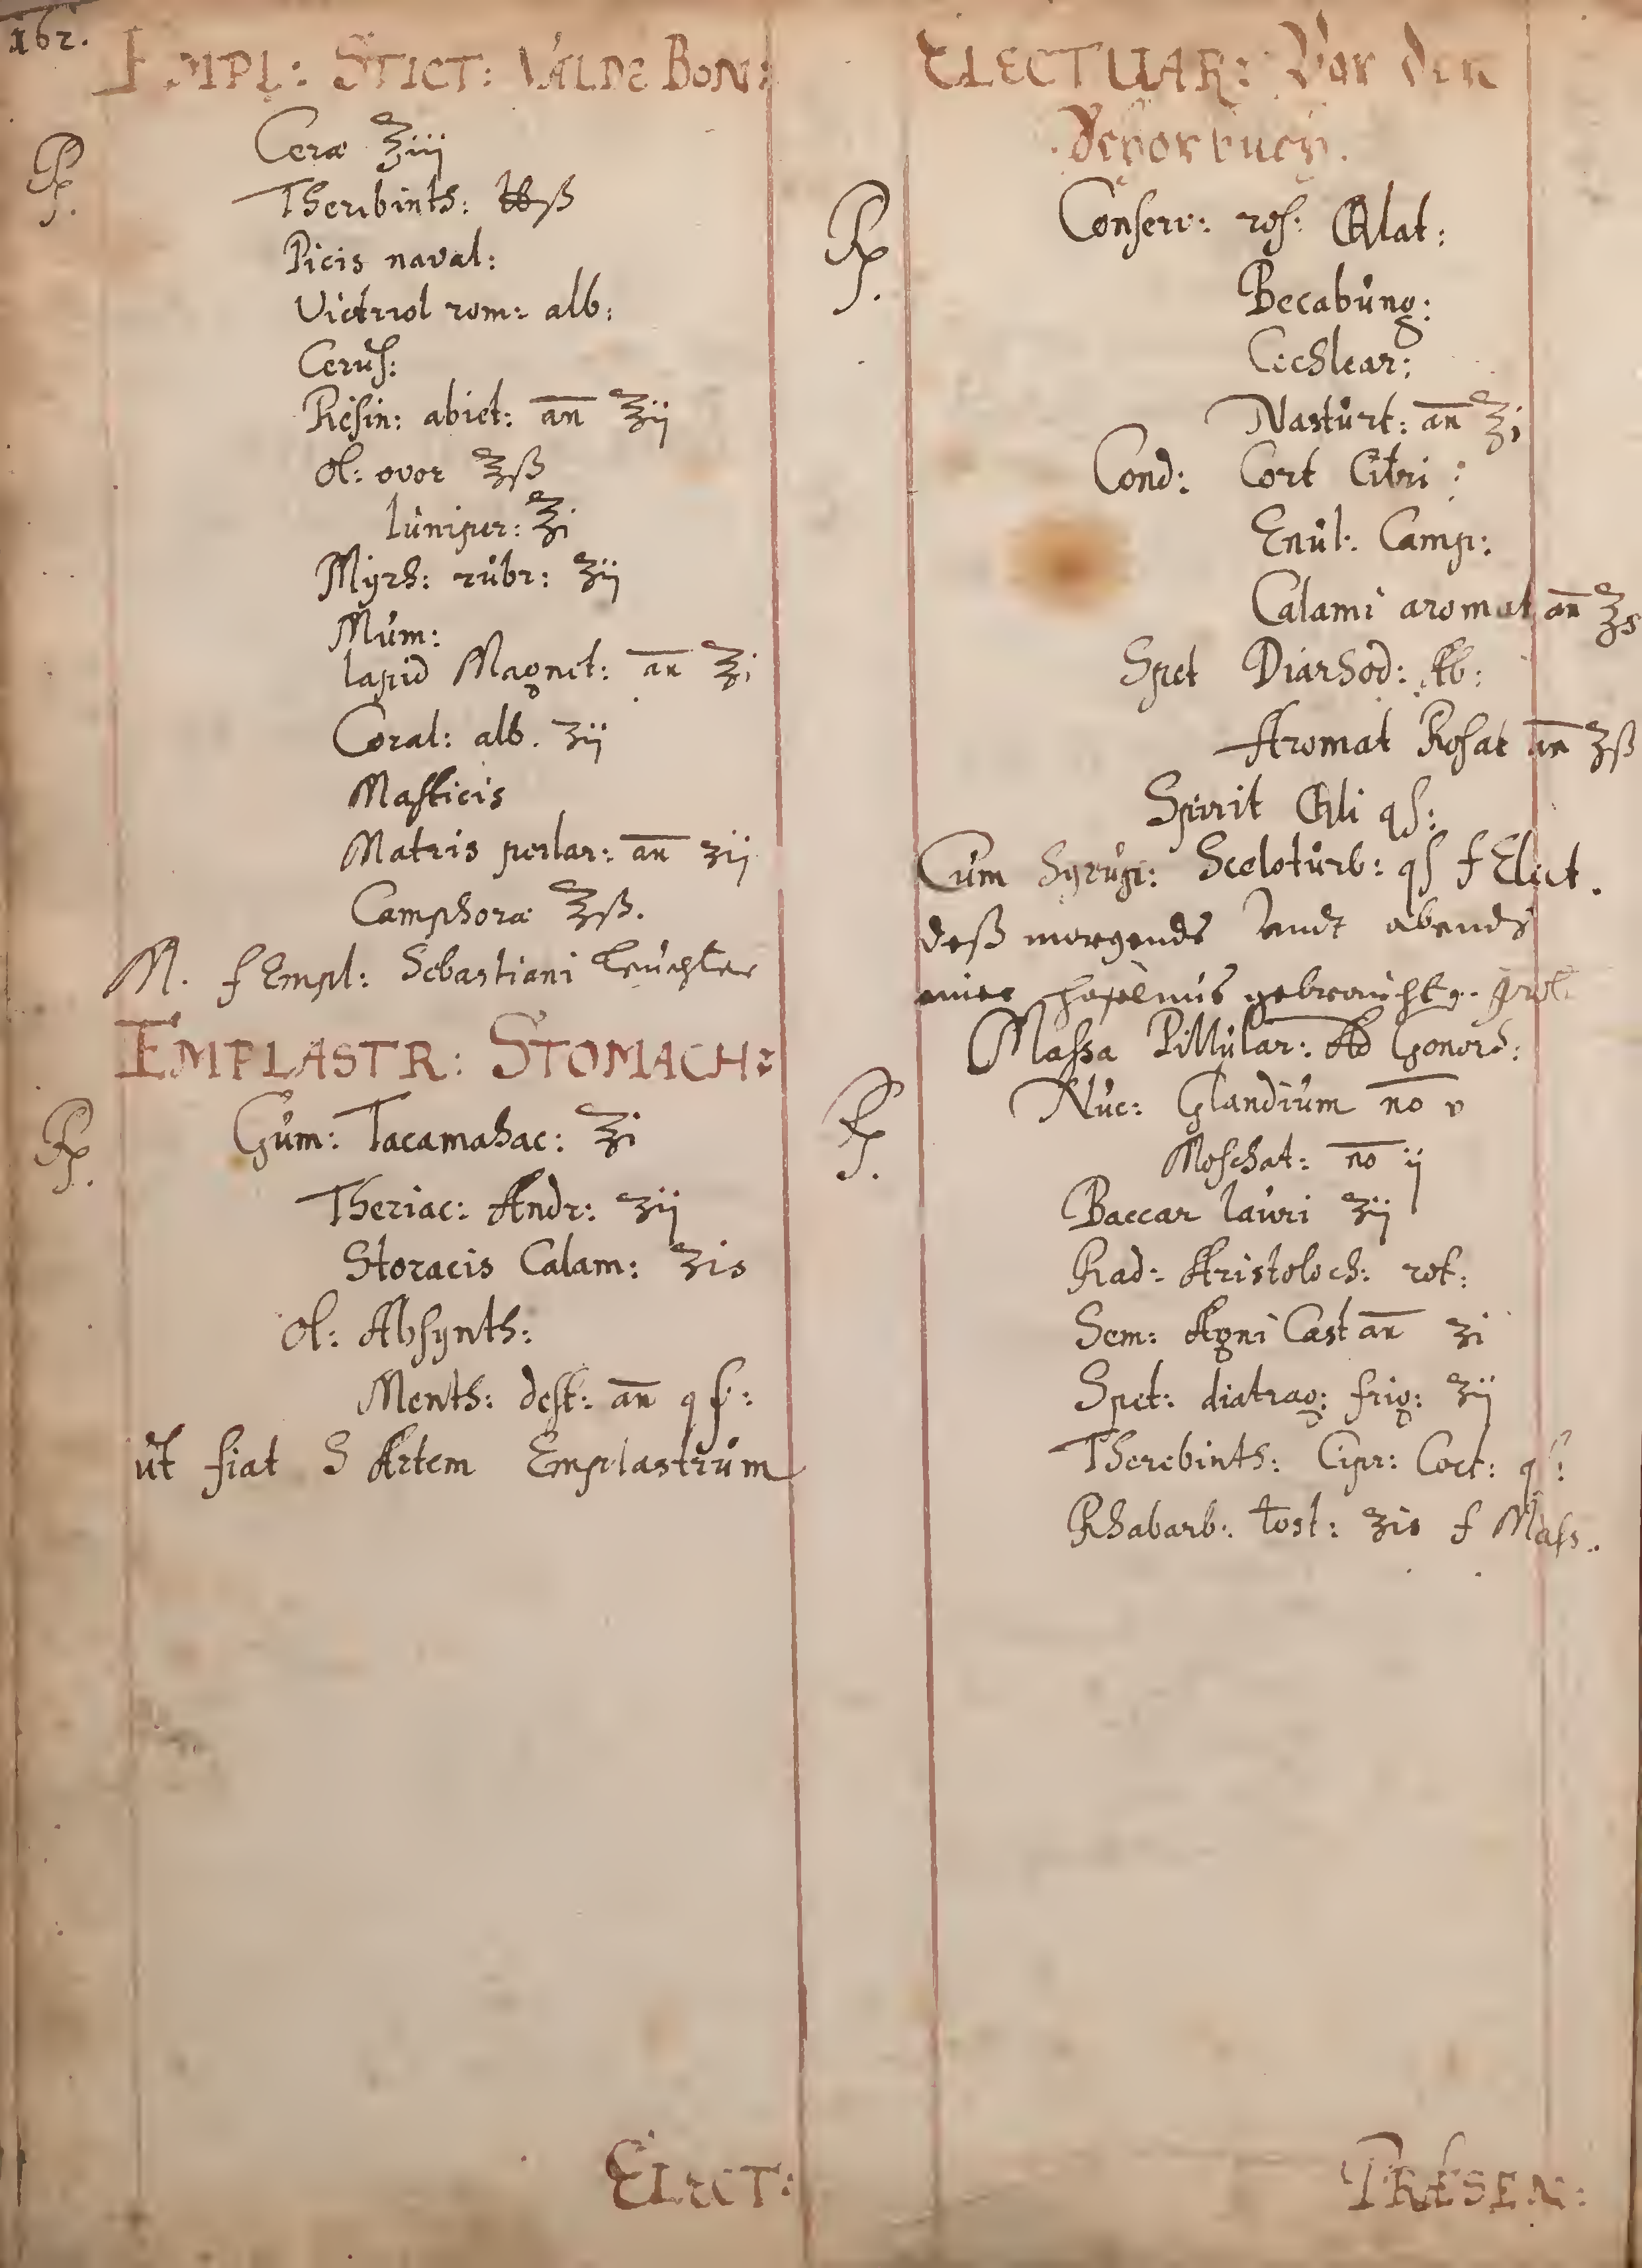 162.
EMPL: STICT: VALDE BON:
Rp.
Ceræ ℥iij
Therebinth: ℔ß
Picis naval:
Victriol rom: alb:
Cerus:
Resin: abiet: an ℥ij
Ol: ovor ℥ß
Iuniper: ℥i
Myrh: rubr: ʒij
Mum:
lapid Magnet: an ℥i
Coral: alb. ʒij
Masticis
Matris perlar: an ʒij
Camphoræ ℥ß.
M. f Empl: Sebastiani Leuchter
EMPLASTR: STOMACH:
Rp.
Gum: Tacamahac: ℥i
Theriac: Andr: ʒij
Storacis Calam: ʒis
Ol: Absynth:
Menth: dest: an qs:
ut fiat S Artem Emplastrum
ELECT:
ELECTUAR: Vor den
Schorbuch.
Rp.
Conserv: ros: Qlat:
Becabung:
Cochlear:
Nasturt: an ℥i
Cond: Cort Citri:
Enul: Camp:
Calami aromat an ℥s
Spet Diarhod: Ab:
Aromat Rosat an ʒß
Spirit Qli qs:
Cum Syrup: Sceloturb: qs f Elect.
deß morgends Vndt abends
einer haselnus gebraucht
Massa Pillular: Ad Gonorh:
Rp.
Nuc: Glandium no v
Moschat: no ij
Baccar lauri ʒij
Rad: Aristoloch: rot:
Sem: Agni Cast an ʒi
Spet: diatrag: frig: ʒij
Therebinth: Cipr: Coct: qs:
Rhabarb: tost: ʒis f Mass.
PRÆSEN: